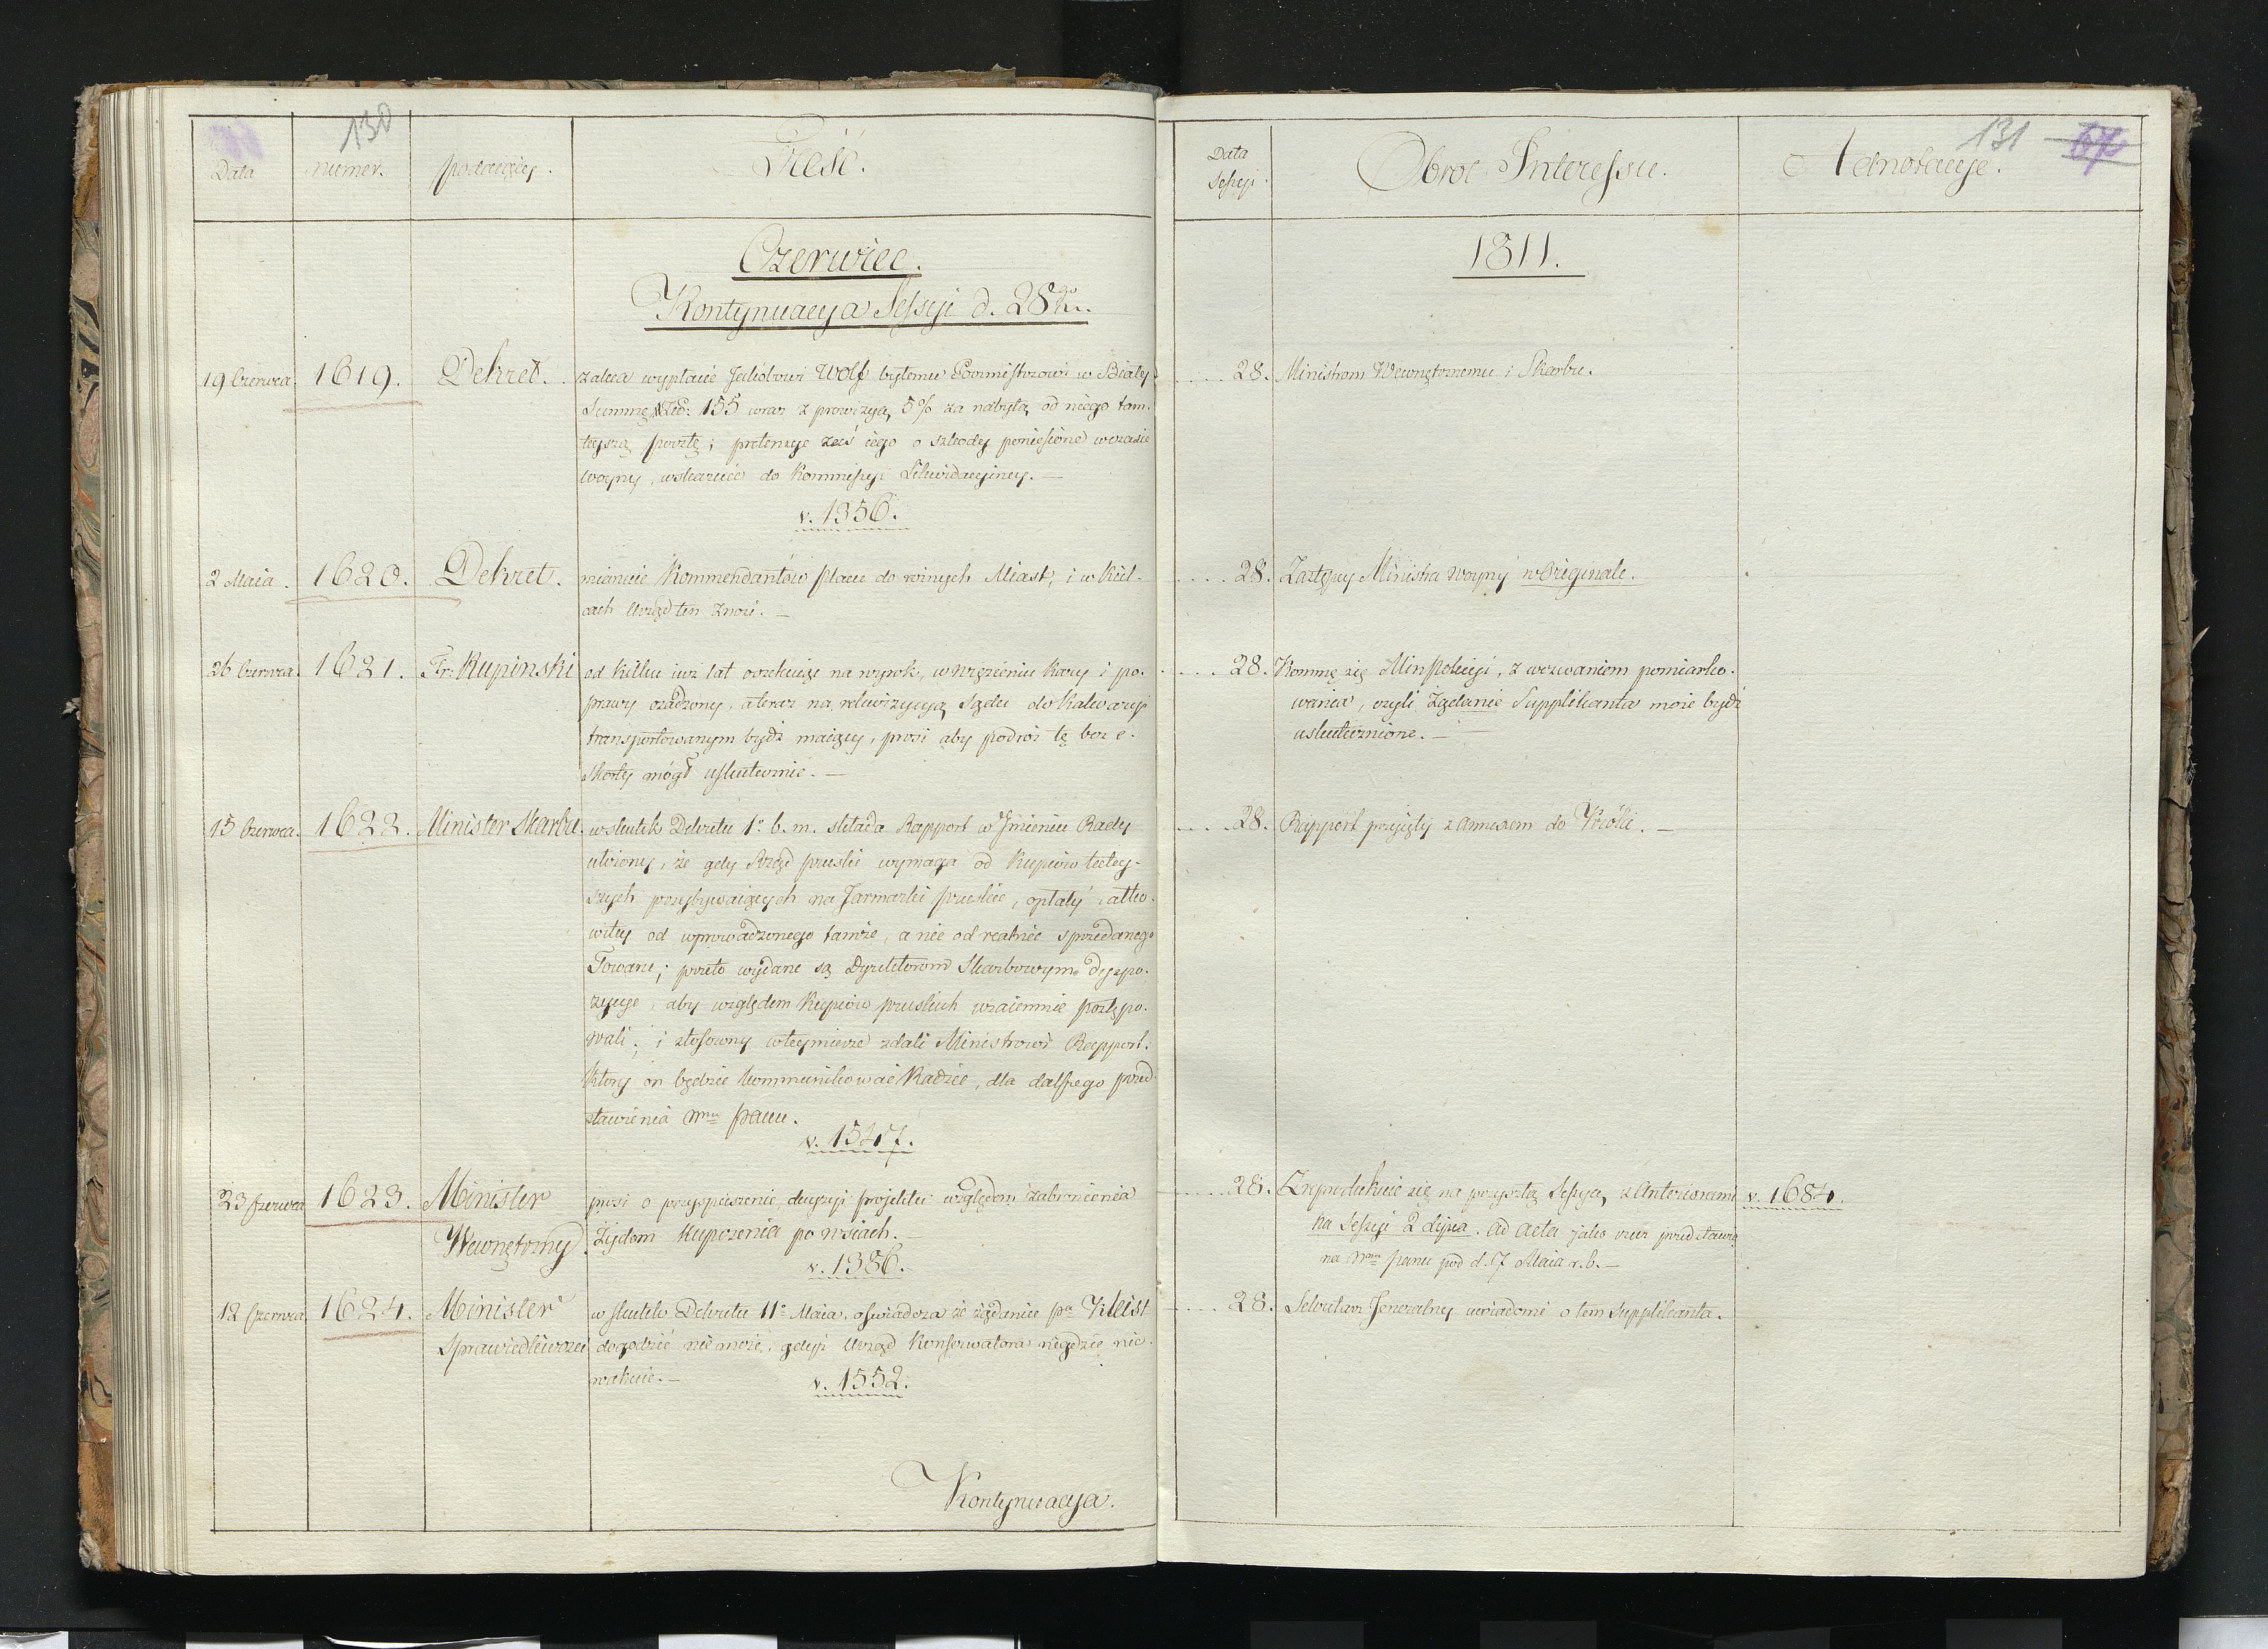 130
Data
numer.
podaiący.
Treść.
Czerwiec.
Kontynuacya Sessyi d. 28go
19 Czerwca. 1619. Dekret.
zaleca wypłacić Jakóbowi Wolf byłemu Poczmistrzowi w Białey
Summę Zł: 155 wraz z prowizyą 5% za nabytą od niego tam.
teyszą pocztę; pretensye zaś iego o szkody poniesione wczasie
woyny, wskazuie do Kommissyi Likwidacyiney. —
v. 1356.
2 Maia. 1620. Dekret.
mianuie Kommendantów placu do róznych Miast, i w Kiel-
cach Urząd ten znosi. —
26 Czerwca. 1621. Fr: Kupinski
od kilku iuz lat oczekuiąc na wyrok, w więzieniu Kary i po-
prawy osadzony, a teraz na rekwizycyą Sądu do Kalwaryi
transportowanym bydź maiący, prosi aby podróż tę bez e-
skorty mógł uskutecznić. —
15 Czerwca. 1622. Minister Skarbu
wskutek Dekretu 1º b. m. składa Rapport w Imieniu Rady
ułożony, że gdy Rząd pruski wymaga od Kupców tutey-
szych przybywaiących na Jarmarki pruskie, opłaty całko-
witey od wprowadzonego tamże, a nie od realnie sprzedanego
Towaru; przeto wydane są Dyrektorom Skarbowym dyspo-
zycye, aby względem Kupców pruskich wzaiemnie postępo-
wali; i stosowny wteymierze zdali Ministrowi Rapport.
który on będzie kommunikować Radzie, dla dalszego przed
stawienia Nmu panu.
v. 1547.
23 Czerwca 1623. Minister
Wewnętrzny
prosi o przyspieszenie decyzyi projektu względem zabronienia
Żydom kupczenia po wsiach. —
v. 1386.
12 Czerwca 1624. Minister
Sprawiedliwości
wskutek Dekretu 11º Maia, oświadcza że żądaniu pa Kleist
dogodzić nie może, gdyż Urząd Konserwatora nigdzie nie
wakuie. —
v. 1552.
Kontynuacya.
131 67
Data
Sessyi
Obrot Interessu.
Adnotacye.
1811.
28. Ministrom Wewnętrznemu i Skarbu.
28. Zastępcy Ministra woyny w Originale.
28. Kommę się Min policyi, z wezwaniem pomiarko-
wania, czyli Żądanie Supplikanta może bydź
uskutecznione. —
28. Rapport przyięty z annexem do Króla. —
28. Zreprodukuie się na przyszłą Sessyą z Anteriorami v. 1684.
na Sessyi 2 Lipca. ad acta jako iuż przedstawio
na Nmu panu pod d. 7 Maia r. b. —
28. Sekretarz Jeneralny uwiadomi o tem Supplikanta.